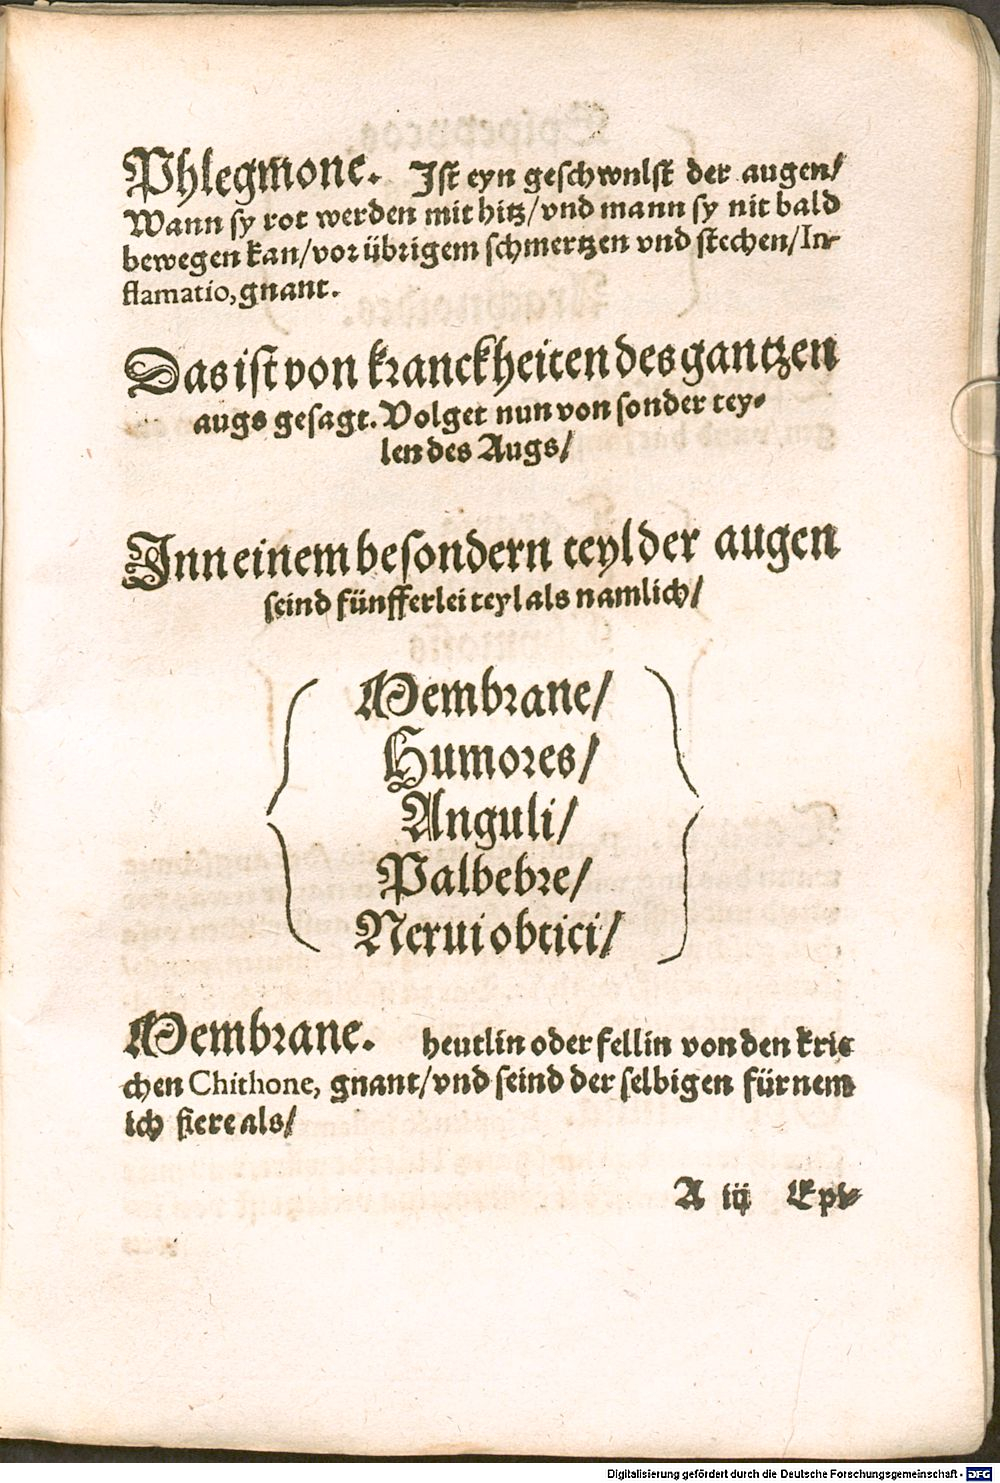 Phlegmone. Ist eyn geschwulst der augen/
Wann sy rot werden mit hitz/vnd mann sy nit bald
bewegen kan/vor übrigem schmertzen vnd stechen/In-
flamatio, gnant.
Das ist von kranckheiten des gantzen
augs gesagt. Volget nun von sonder tey-
len des Augs/
Inn einem besondern teyl der augen
seind fünfferlei teyl als namlich/
Membrane/
Humores/
Anguli/
Palbebre/
Nerui obtici/
Membrane. heutlin oder fellin von den krie
chen Chithone, gnant/vnd seind der selbigen fürnem
lich fiere als/
A iij Epy-
Digitalisierung gefördert durch die Deutsche Forschungsgemeinschaft - DFG